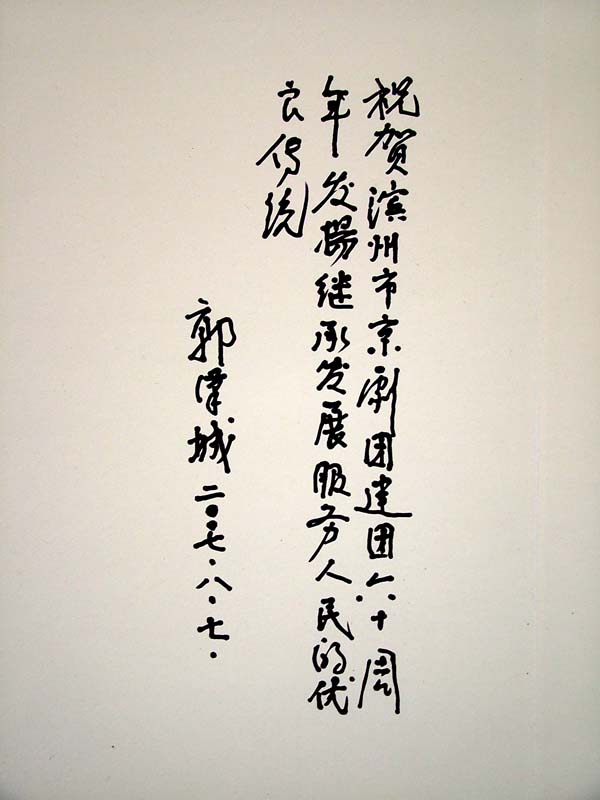 祝贺滨州市京剧团建团六十周
年发揚继承发展服务人民的优
良传统
郭漢城 二〇〇七·八·七·